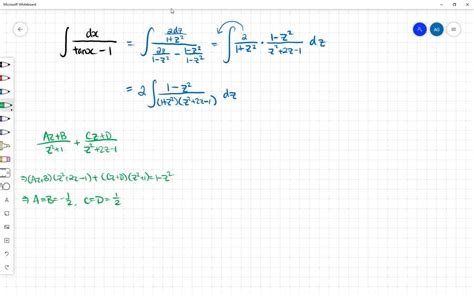 Microsoft Whiteboard
∫ dx/(tanx - 1) = ∫ (2dz/(1+z²))/(2z/(1-z²) - (1-z²)/(1-z²)) = ∫ 2/(1+z²) · (1-z²)/(z²+2z-1) dz
= 2 ∫ (1-z²)/((1+z²)(z²+2z-1)) dz
(Az+B)/(z²+1) + (Cz+D)/(z²+2z-1)
⇒ (Az+B)(z²+2z-1) + (Cz+D)(z²+1) = 1-z²
⇒ A=B=-1/2, C=D=1/2